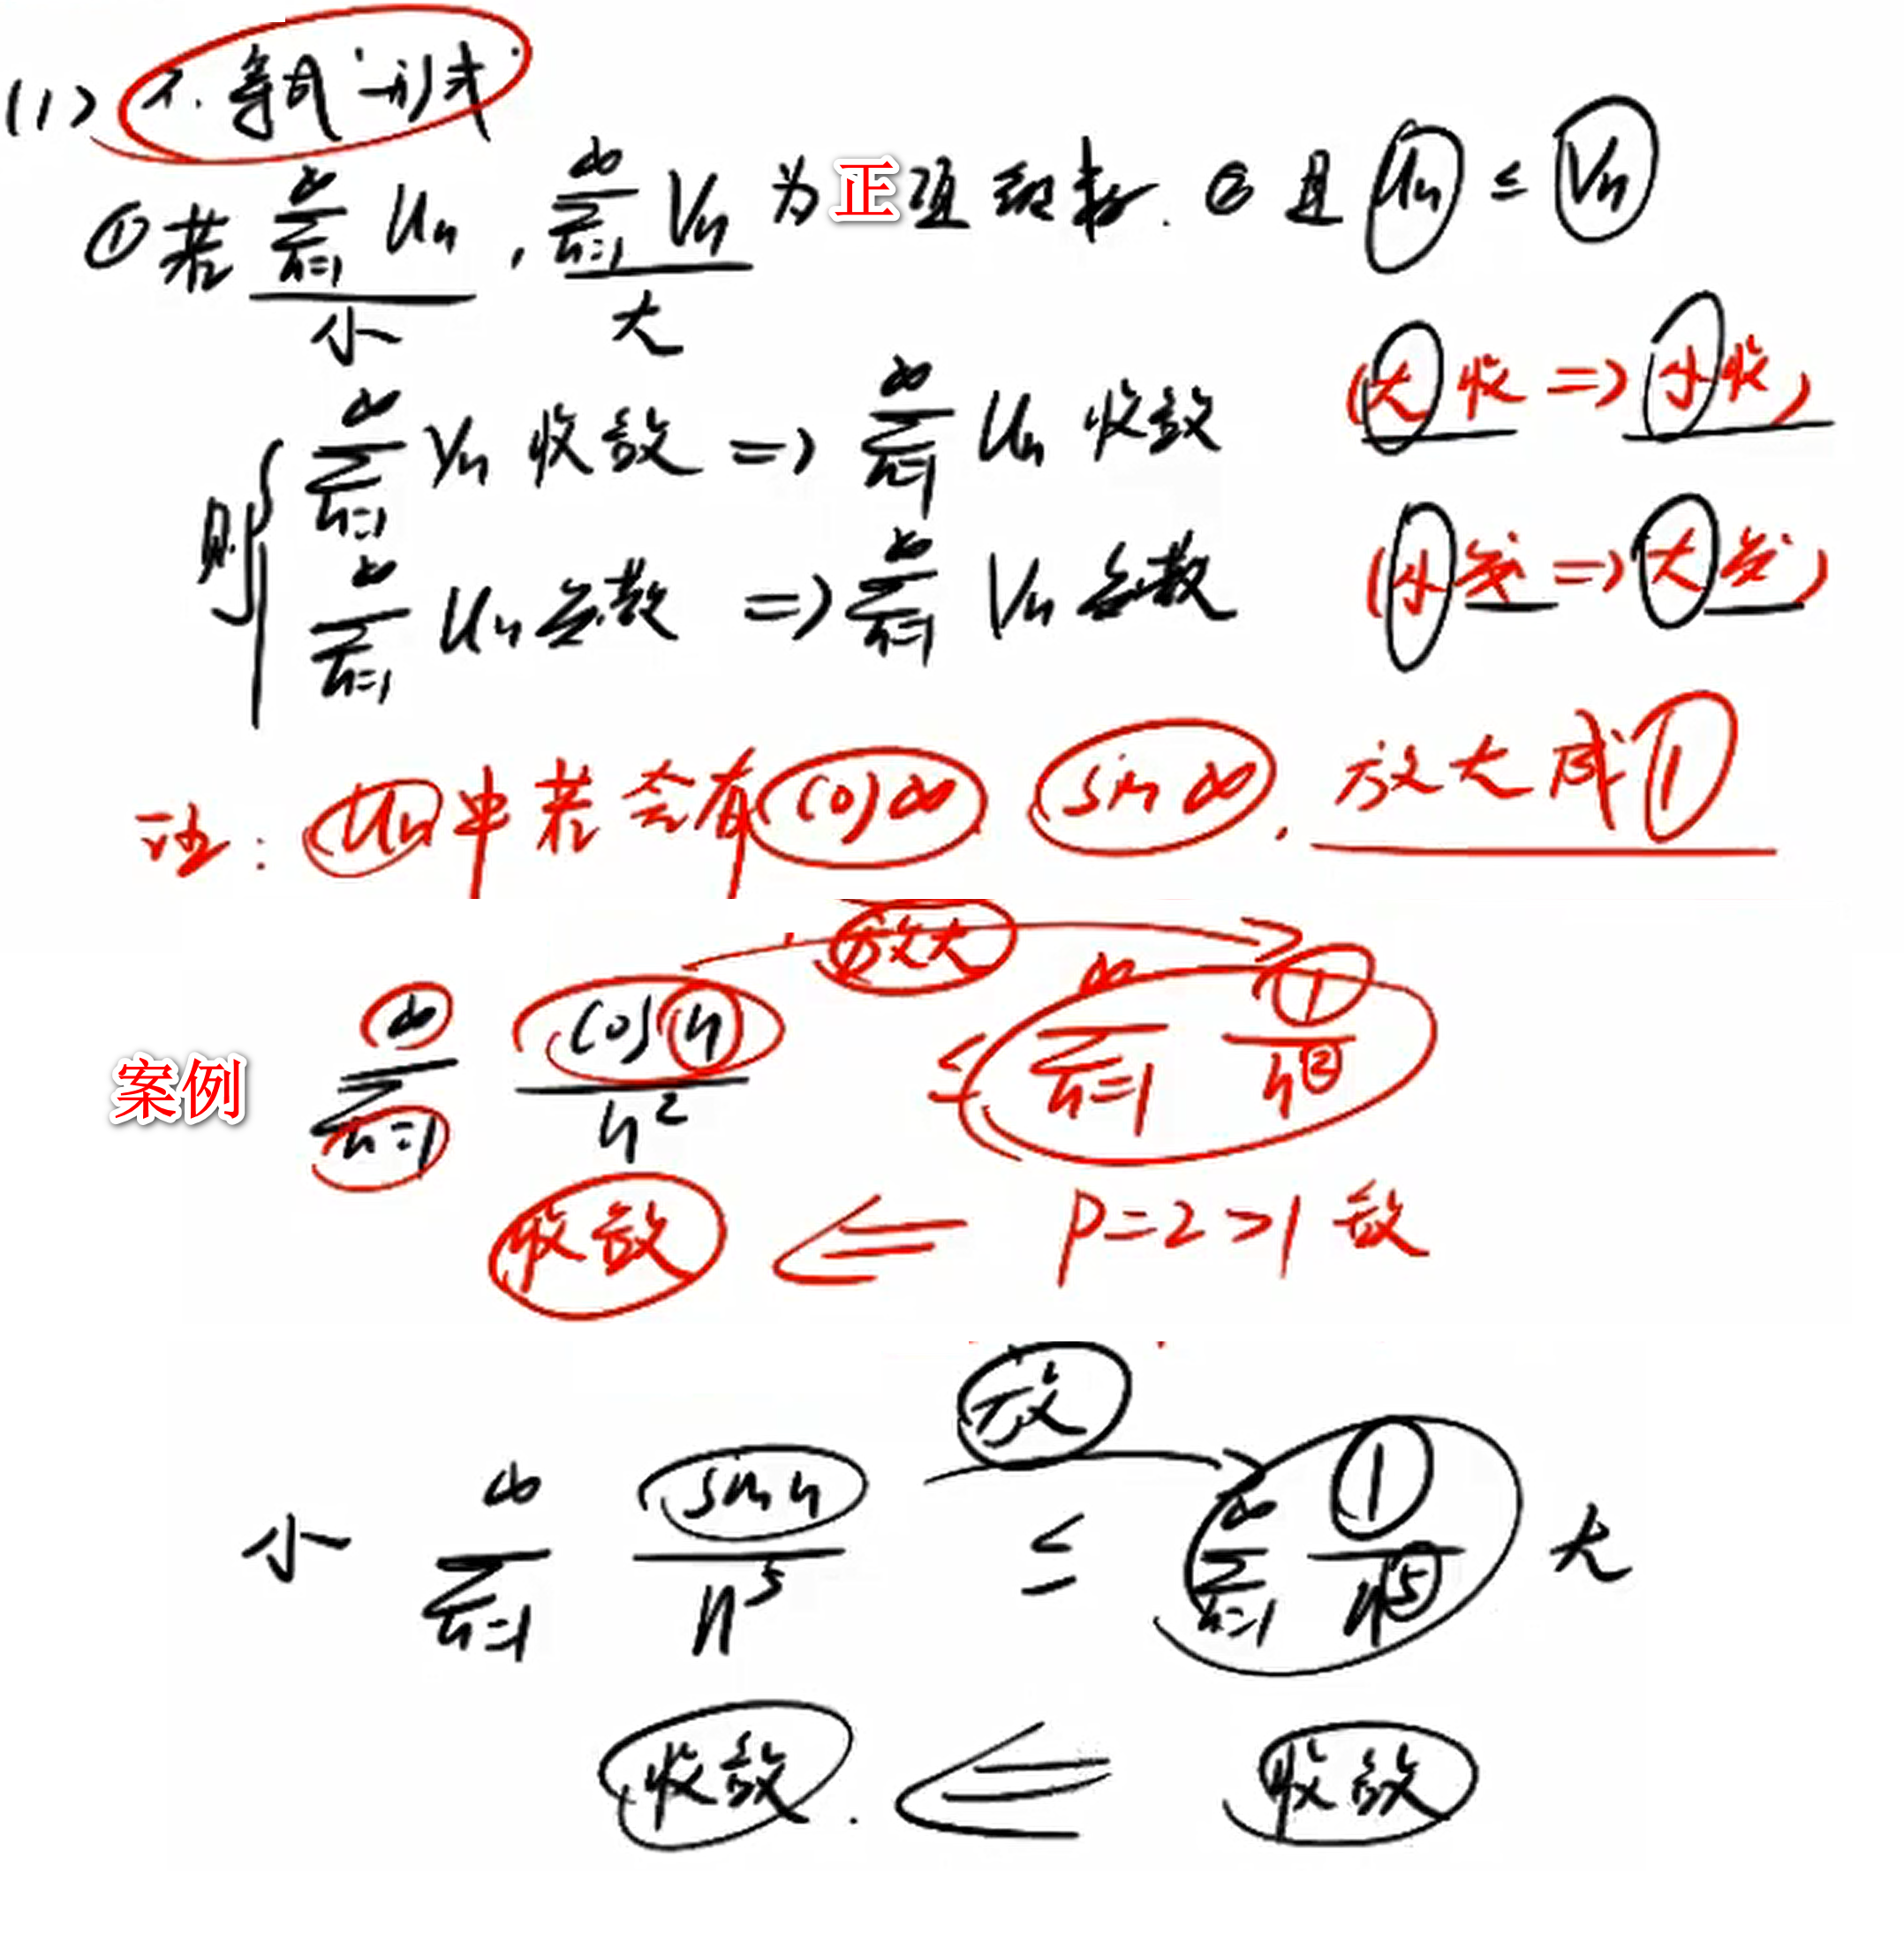 (1) 不等式形式
① 若 ∞∑n=1 Un , ∞∑n=1 Vn 为正项级数. ② 且 Un ≤ Vn
小 大
则{ ∞∑n=1 Vn 收敛 => ∞∑n=1 Un 收敛 (大收 => 小收)
∞∑n=1 Un 发散 => ∞∑n=1 Vn 发散 (小发 => 大发)
注: Un中若含有 cos∞ sin∞ . 放大成1
放大
案例 ∞∑n=1 cosn/n² ≤ ∞∑n=1 1/n²
收敛 <= P=2>1 敛
放
小 ∞∑n=1 sinn/n⁵ ≤ ∞∑n=1 1/n⁵ 大
收敛. <= 收敛